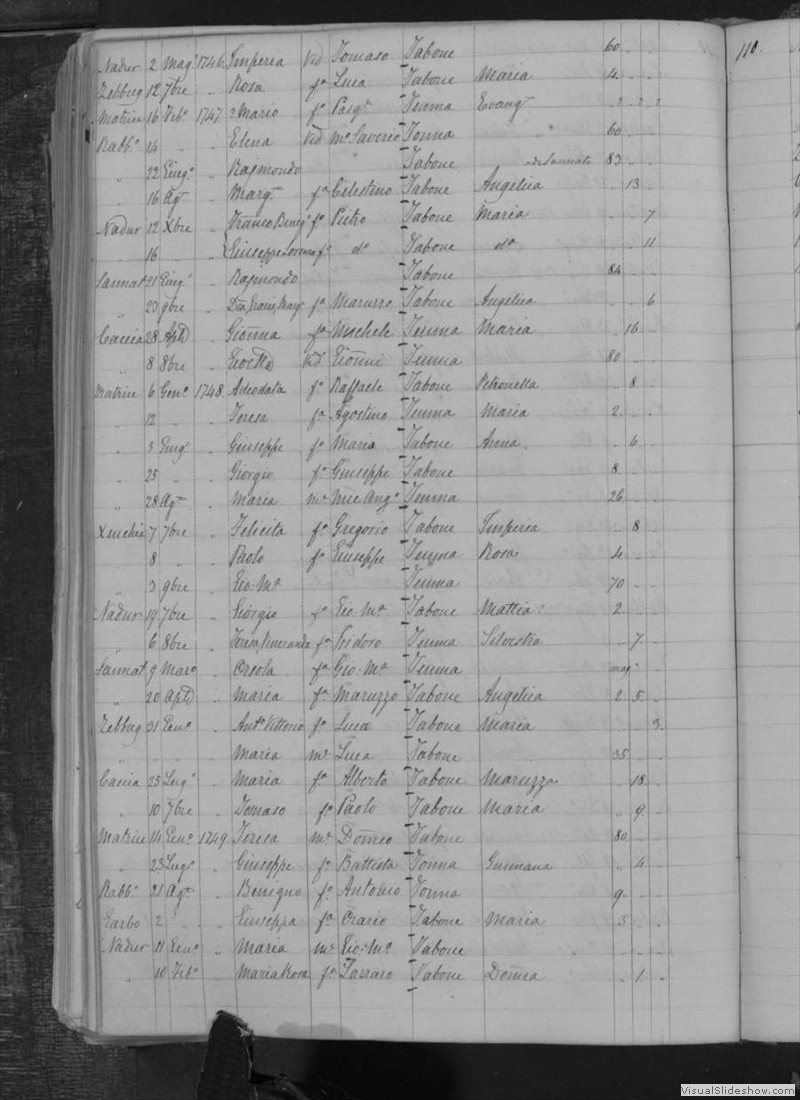 Nadur 2 Mag° 1746 Imperia Vid Tomaso Tabone 60 " "
Zebbug 12 7bre " Rosa fa Luca Tabone Maria 4 " "
Matrice 16 Feb° 1747 ? Mario f° Pasqe Tuama Evangta ? ? ?
Rabb° 14 " " Elena Vid M° Saverio Tonna 60 " "
" 22 Giug° " Raimondo Tabone de Sannato 83 " "
" 16 Agto " Margta fa Celestino Tabone Angelica " 13 "
Nadur 12 Xbre " Franco Benigo f° Pietro Tabone Maria " " 7
" 16 " " Giuseppe Lorenzo f° d° Tabone da " " 11
Sannat 21 Giug° " Raimondo Tabone 84 " "
" 23 9bre " fa Maruzzo Tabone Angelica " " 6
Caccia 28 Aple " Gionna fa Michele Tenna Maria " 16 "
" 8 8bre " Vid Gionni Tenna 80 " "
Matrice 6 Gen° 1748 Adeodata f° Raffaele Tabone Petronella " 8 "
" 12 " " Teresa fa Agostino Tenna Maria 2 " "
" 3 Giug° " Giuseppe f° Mario Tabone Anna " 6 "
" 25 " " Giorgio f° Giuseppe Tabone 8 " "
" 28 Agto " Maria me Mic Ang° Tenna 26 " "
Xeuchia 7 7bre " Felicita fa Gregorio Tabone Imperia " 8 "
" 8 " " Paolo f° Giuseppe Tenna Rosa 4 " "
" 3 9bre " Gio. Ma Tenna 70 " "
Nadur 19 7bre " Giorgio f° Gio. Ma Tabone Mattia 2 " "
" 6 8bre " Teresa Veneranda fa Isidoro Tenna Silvestra " 7 "
Sannat 9 Marz° " Orsola fa Gio. Ma Tenna mag°
" 20 Aple " Maria fa Maruzzo Tabone Angelica 2 5 "
Zebbug 31 Gen° " Ant° Vittorio f° Luca Tabone Maria " " 3
" " " " Maria me Luca Tabone 35 " "
Caccia 25 Lug° " Maria fa Alberto Tabone Maruzza " 18 "
" 10 7bre " Tomaso f° Paolo Tabone Maria " 9 "
Matrice 14 Gen° 1749 Teresa me Domco Tabone 80 " "
" 23 Lug° " Giuseppe f° Battista Tonna Gusmana " 4 "
Rabb° 21 Agto " Benigno f° Antonio Tonna 9 " "
Garbo 2 " " Giuseppa fa Orazio Tabone Maria 3 " "
Nadur 11 Gen° " Maria me Gio. Ma Tabone " " "
" 10 Feb° " Maria Rosa fa Tabone Domca " 1 "
110.
VisualSlideshow.com